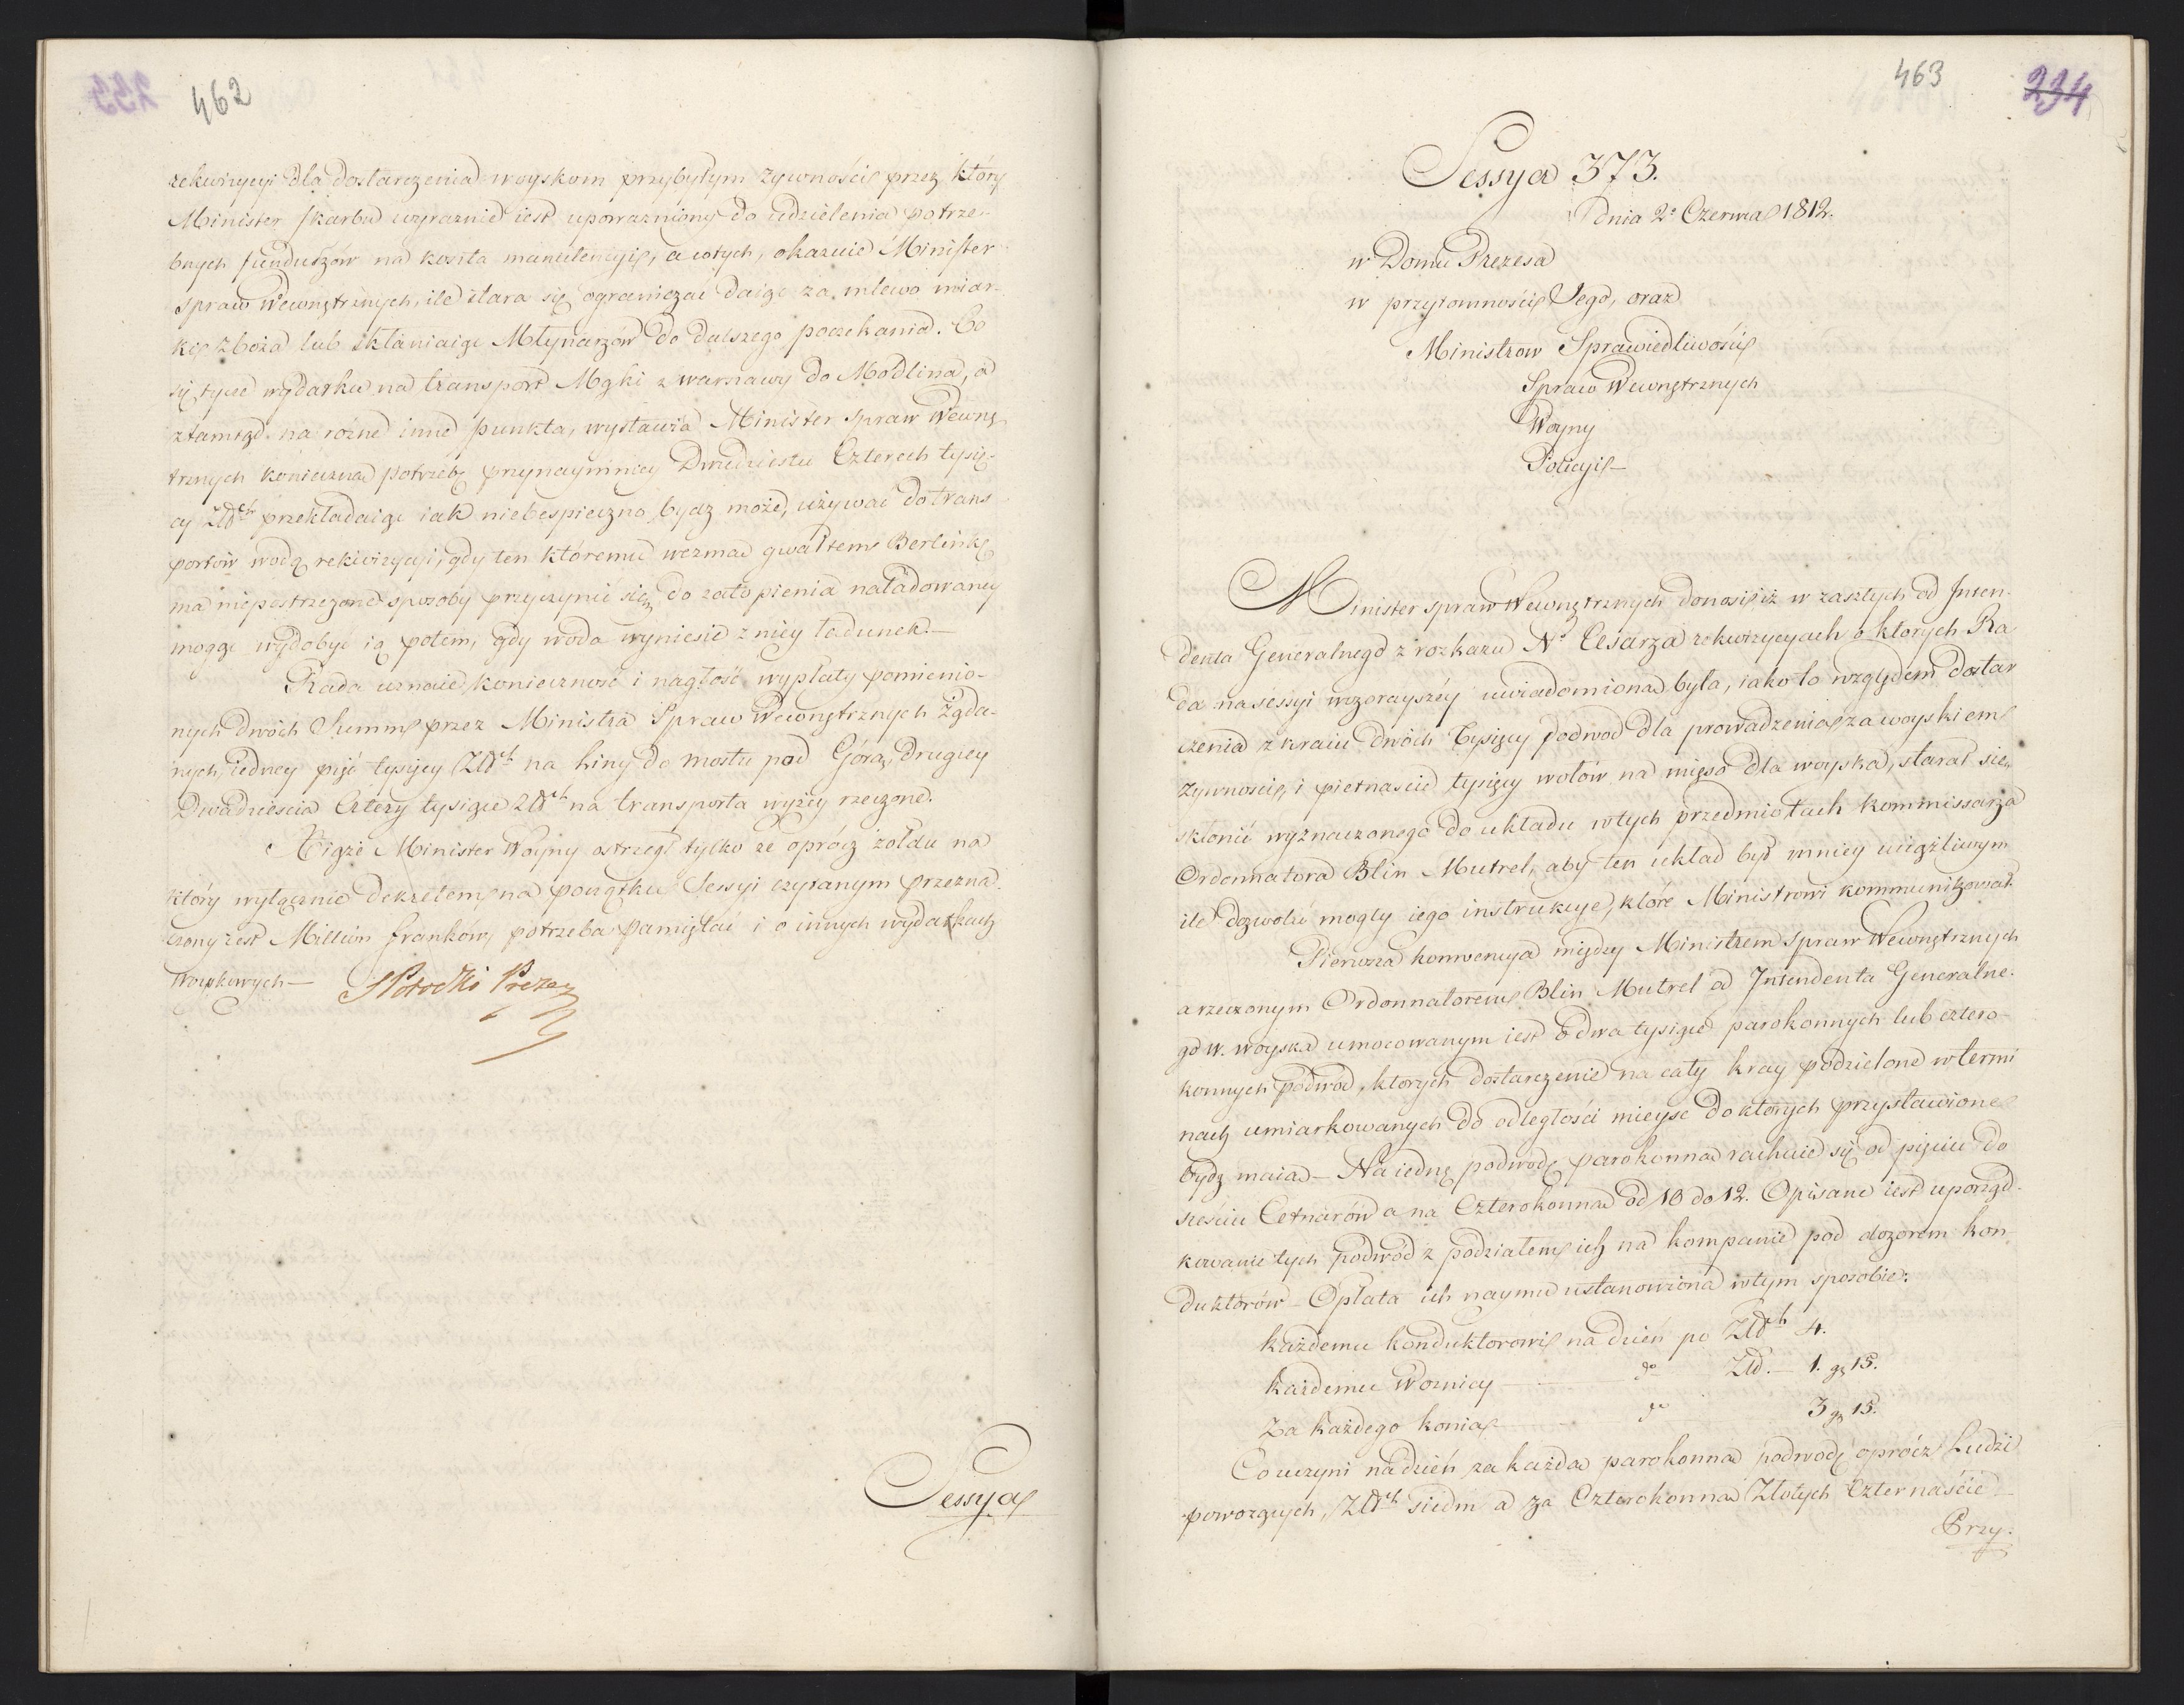 462
rekwizycyi dla dostarczenia woyskom przybyłym żywności przez który
Minister skarbu wyraznie iest upoważniony do udzielenia potrze-
bnych funduszów na koszta manutencyi, a w tych, okazuie Minister
spraw Wewnętrznych, ile stara się ograniczać daiąc za mlewo miar-
ki zboża lub skłaniaiąc Młynarzów do dalszego poczekania. Co
się tycze wydatku na transport Mąki z warszawy do Modlina, a
ztamtąd na różne inne punkta, wystawia Minister Spraw Wewnę
trznych konieczna potrzebę przynaymniey Dwudziestu Czterech tysię-
cy Złłch przekładaiąc iak niebespieczno bydz może, używać do trans
portów wodą rekwizycyi, gdy ten któremu wezmą gwałtem Berlinkę
ma niepostrzeżone sposoby przyczynić się do zatopienia naładowaney
mogąc wydobyć ią potem, gdy woda wyniesie z niey ładunek.—
Rada uznaie konieczność i nagłość wypłaty pomienio-
nych dwóch Summ przez Ministra Spraw Wewnętrznych żąda-
nych, iedney pięć tysięcy Złłch na liny do mostu pod Górą, drugiey
Dwadzieścia Cztery tysiące Złłch na transporta wyżey rzeczone.
Tiąże Minister Woyny ostrzegł tylko że oprócz żołdu na
który wyłącznie dekretem na początku Sessyi czytanym przezna-
czony iest Million franków, potrzeba pamiętać i o innych wydatkach
Woyskowych— S Potocki Prezes
Sessya
463
234
Sessya 373.
dnia 2o Czerwca 1812.
w Domu Prezesa
w przytomności Jego, oraz
Ministrow Sprawiedliwości
Spraw Wewnętrznych
Woyny
Policyi—
Minister spraw Wewnętrznych donosi, iż w zaszłych od Inten-
denta Generalnego z rozkazu No Cesarza rekwizycyach o których Ra
da na sessyi wczorayszéy uwiadomiona była, iako to względem dostar
czenia z kraiu dwóch tysięcy podwod dla prowadzenia za woyskiem
żywności, i pietnascie tysięcy wołów na mięso dla woyska, starał się
skłonić wyznaczonego do układu w tych przedmiotach kommissarza
Ordonnatora Blin Mutrel, aby ten układ był mniey uciążliwym
ile dozwolić mogły iego instrukcye, które Ministrowi kommunikował.
Pierwsza konwencya między Ministrem Spraw Wewnętrznych
a rzeczonym Ordonnatorem Blin Mutrel od Intendenta Generalne-
go W. woyska umocowanym iest o dwa tysiące parokonnych lub cztero-
konnych podwód, których dostarczenie na cały kray podzielone w termi
nach umiarkowanych do odległości mieysc do których przystawione
bydz maią— Na iedną podwodę parokonną rachuie się od pięciu do
sześciu Cetnarów a na Czterokonną od 10 do 12. Opisane iest uporząd-
kowanie tych podwód z podziałem ich na kompanie pod dozorem kon
duktorów— Opłata ich naymu ustanowiona w tym sposobie:
każdemu konduktorowi na dzień po Złłch 4.
każdemu Woznicy — do Złł.— 1. gr 15.
Za każdego konia — do 3 gr 15.
Co uczyni na dzień za każdą parokonną podwodę oprócz Ludzi
powożących, Złłch siedm a za Czterokonną Złotych Czternaście
Przy-